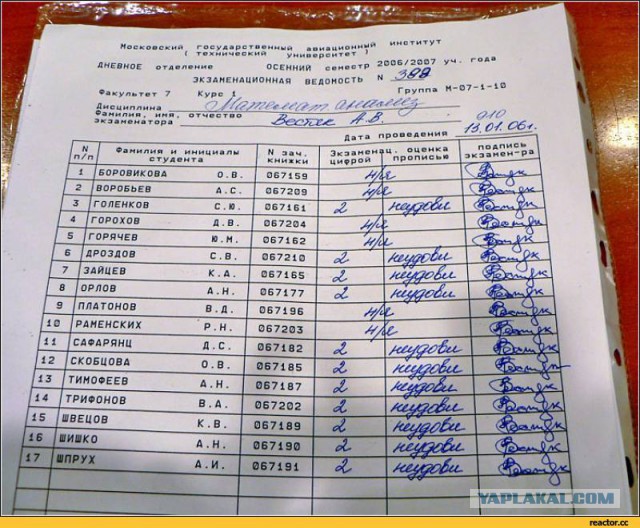 Московский государственный авиационный институт
( технический университет )
ДНЕВНОЕ отделение ОСЕННИЙ семестр 2006/2007 уч. года
ЭКЗАМЕНАЦИОННАЯ ВЕДОМОСТЬ N 388
Факультет 7 Курс 1 Группа М-07-1-10
Дисциплина Математ. анализ
Фамилия, имя, отчество
экзаменатора А.В. 010
Дата проведения 13.01.06г.
N п/п Фамилия и инициалы студента N зач. книжки Экзаменац. оценка цифрой прописью подпись экзамен-ра
1 БОРОВИКОВА О.В. 067159 н/я
2 ВОРОБЬЕВ А.С. 067209 н/я
3 ГОЛЕНКОВ С.Ю. 067161 2 неудовл
4 ГОРОХОВ Д.В. 067204 н/я
5 ГОРЯЧЕВ Ю.М. 067162 н/я
6 ДРОЗДОВ С.В. 067210 2 неудовл
7 ЗАЙЦЕВ К.А. 067165 2 неудовл
8 ОРЛОВ А.Н. 067177 2 неудовл
9 ПЛАТОНОВ В.Д. 067196 н/я
10 РАМЕНСКИХ Р.Н. 067203 н/я
11 САФАРЯНЦ Д.С. 067182 2 неудовл
12 СКОБЦОВА О.В. 067185 2 неудовл
13 ТИМОФЕЕВ А.Н. 067187 2 неудовл
14 ТРИФОНОВ В.А. 067202 2 неудовл
15 ШВЕЦОВ К.В. 067189 2 неудовл
16 ШИШКО А.Н. 067190 2 неудовл
17 ШПРУХ А.И. 067191 2 неудовл
YAPLAKAL.COM
reactor.cc